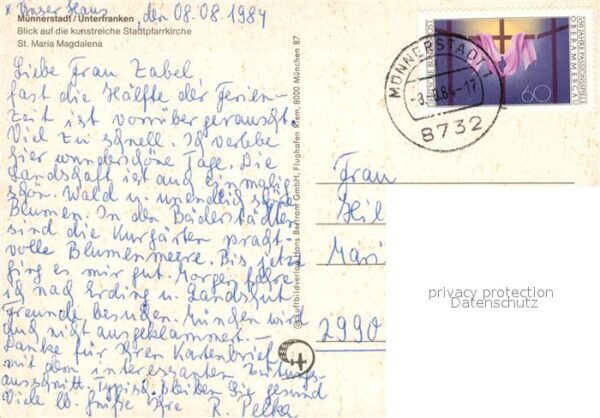 x Unser Haus, den 08.08.1984
Münnerstadt/Unterfranken
Blick auf die kunstreiche Stadtpfarrkirche
St. Maria Magdalena
Liebe Frau Zabel
fast die Hälfte der Ferien-
zeit ist vorrübergerauscht.
Viel zu schnell. Ich verlebe
hier wunderschöne Tage. Die
Landschaft ist auch einmalig
schön. Wald u. unendlich
Blumen. In den Bäderstädten
sind die Kurgärten pracht-
volle Blumenmeere. Bis jetzt
ging es mir gut. Morgen fahre
ich nach Erding u. Landshut
Freunde besuchen. München wird
auch nicht ausgeklammert. –
Danke für Ihren Kartenbrief
mit dem interessanten Zeitungs-
ausschnitt. Typisch. Bleiben Sie gesund
Viele lb. Grüße Ihre R. Pelka
© Luftbildverlag Hans Bertram GmbH, Flughafen Riem, 8000 München 87
DEUTSCHE BUNDESPOST
350 JAHRE PASSIONSSPIELE
OBERAMMERGAU
60
MÜNNERSTADT 1
-8.-8.84-17
8732
Frau
Hil
Mari
2990
privacy protection
Datenschutz